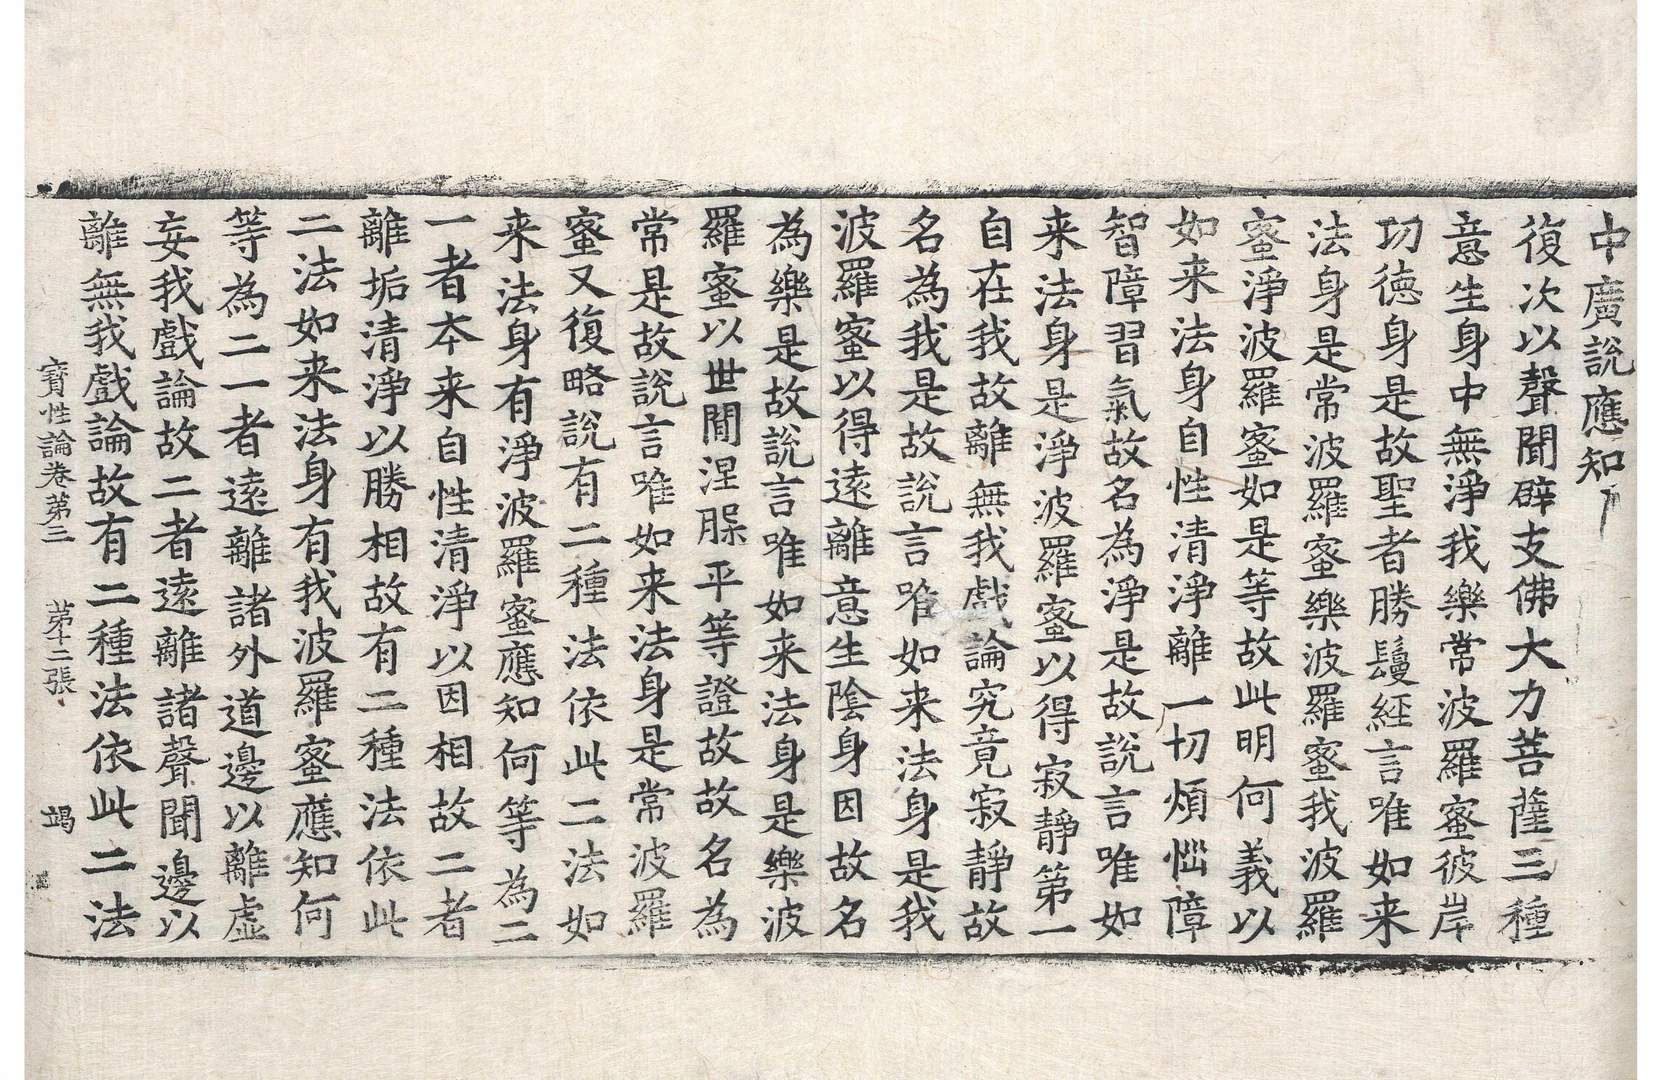 中廣說應知
復次以聲聞辟支佛大力菩薩三種
意生身中無淨我樂常波羅蜜彼岸
功德身是故聖者勝鬘經言唯如来
法身是常波羅蜜樂波羅蜜我波羅
蜜淨波羅蜜如是等故此明何義以
如来法身自性清淨離一切煩惱障
智障習氣故名為淨是故說言唯如
来法身是淨波羅蜜以得寂靜第一
自在我故離無我戲論究竟寂靜故
名為我是故說言唯如来法身是我
波羅蜜以得遠離意生陰身因故名
為樂是故說言唯如来法身是樂波
羅蜜以世間涅槃平等證故故名為
常是故說言唯如来法身是常波羅
蜜又復略說有二種法依此二法如
来法身有淨波羅蜜應知何等為二
一者本来自性清淨以因相故二者
離垢清淨以勝相故有二種法依此
二法如来法身有我波羅蜜應知何
等為二一者遠離諸外道邊以離虛
妄我戲論故二者遠離諸聲聞邊以
離無我戲論故有二種法依此二法
寶性論卷第三 第十二張 竭